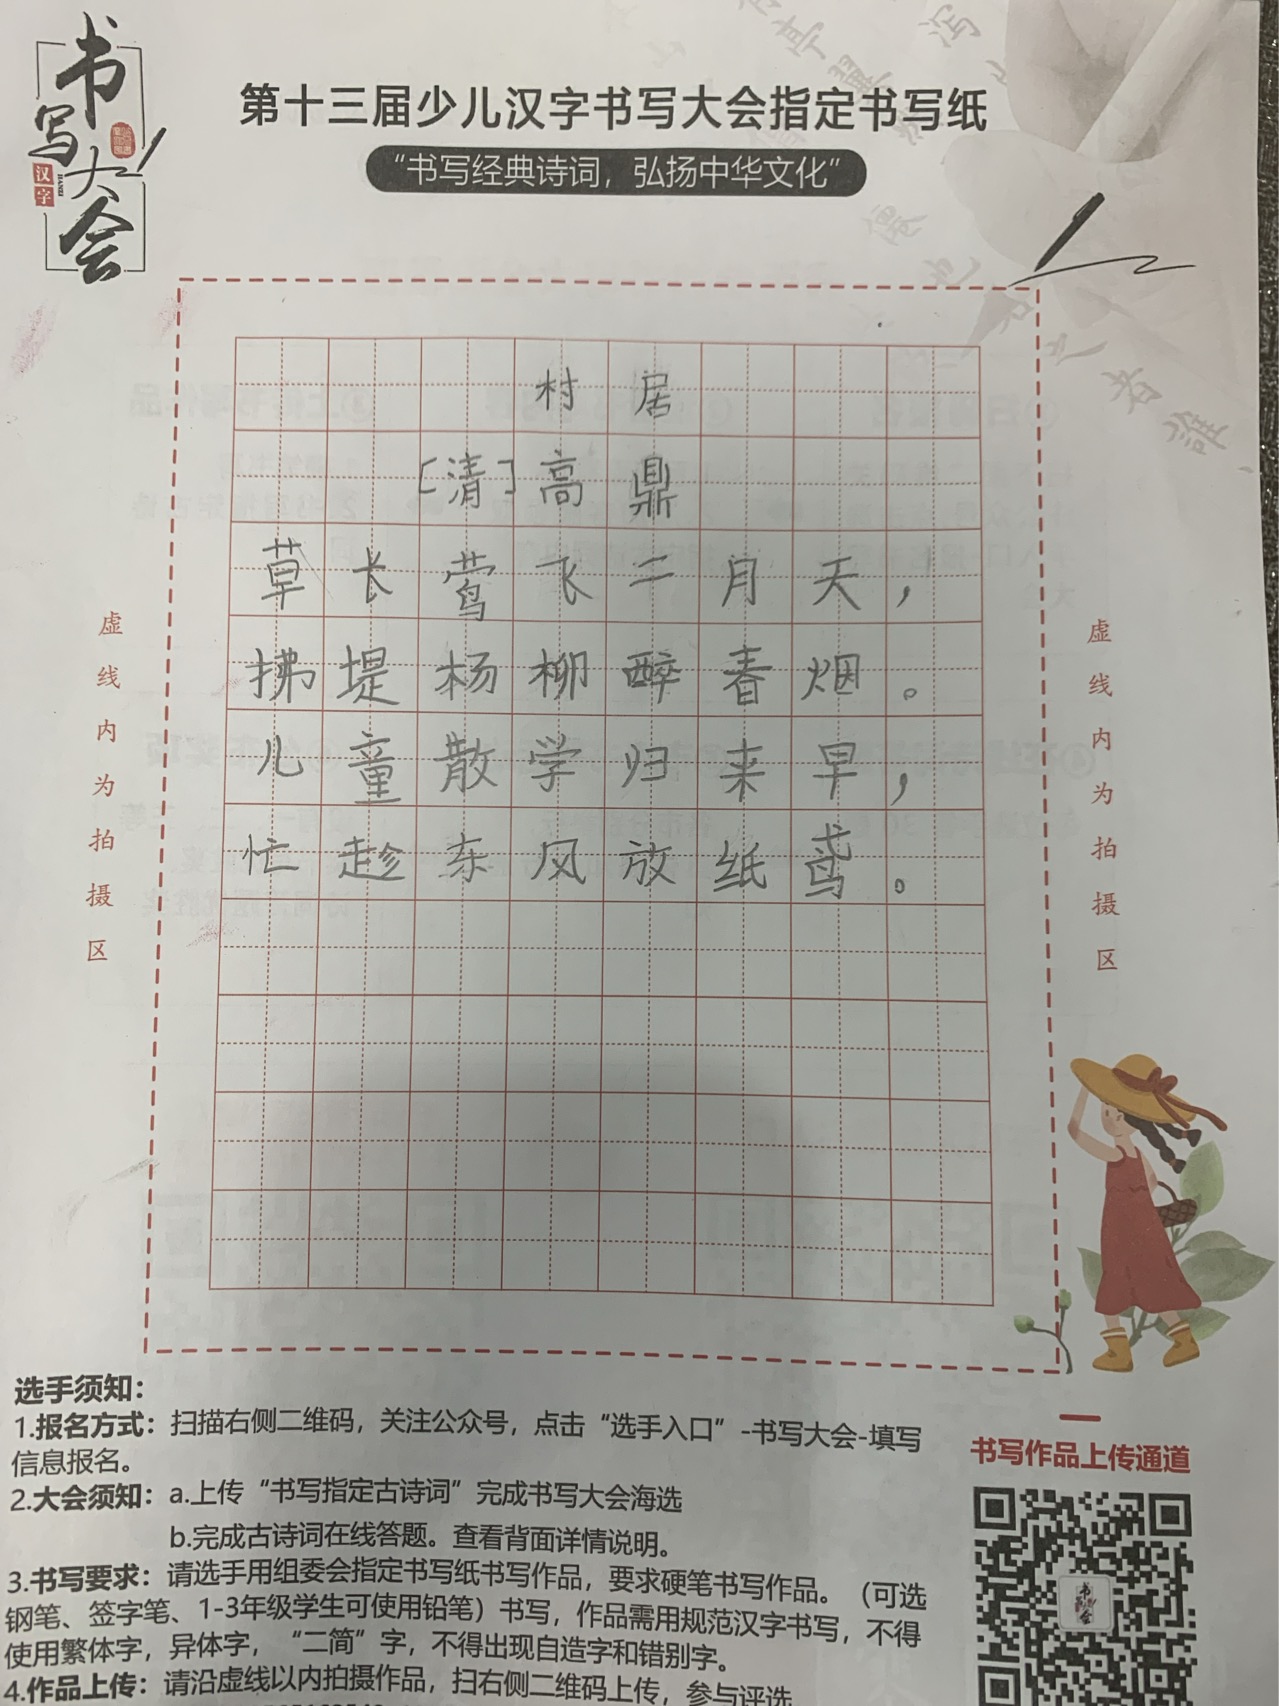 书写大会
汉字
第十三届少儿汉字书写大会指定书写纸
“书写经典诗词，弘扬中华文化”
村居
[清]高鼎
草长莺飞二月天，
拂堤杨柳醉春烟。
儿童散学归来早，
忙趁东风放纸鸢。
虚线内为拍摄区
虚线内为拍摄区
选手须知：
1.报名方式：扫描右侧二维码，关注公众号，点击“选手入口”-书写大会-填写
信息报名。
2.大会须知：a.上传“书写指定古诗词”完成书写大会海选
b.完成古诗词在线答题。查看背面详情说明。
3.书写要求：请选手用组委会指定书写纸书写作品，要求硬笔书写作品。（可选
钢笔、签字笔、1-3年级学生可使用铅笔）书写，作品需用规范汉字书写，不得
使用繁体字，异体字，“二简”字，不得出现自造字和错别字。
4.作品上传：请沿虚线以内拍摄作品，扫右侧二维码上传，参与评选
书写作品上传通道